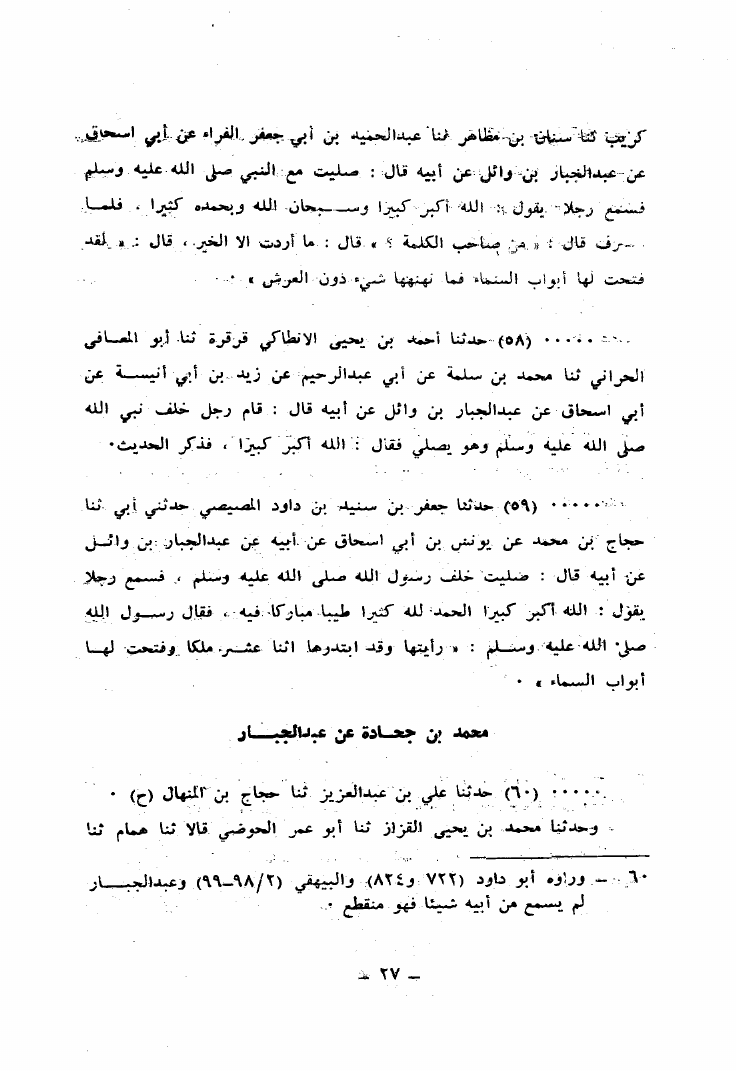 كريب ثنا سنان بن مظاهر ثنا عبدالحميد بن أبي جعفر الفراء عن أبي اسحاق
عن عبدالجبار بن وائل عن أبيه قال : صليت مع النبي صلى الله عليه وسلم
فسمع رجلا يقول : الله أكبر كبيرا وســبحان الله وبحمده كثيرا ، فلمــا
ـرف قال : « من صاحب الكلمة ؟ » قال : ما أردت الا الخير ، قال : « لقد
فتحت لها أبواب السماء فما نهنهها شيء دون العرش » ٠
٠٠٠٠٠ (٥٨) حدثنا أحمد بن يحيى الانطاكي قرقرة ثنا أبو المعــافى
الحراني ثنا محمد بن سلمة عن أبي عبدالرحيم عن زيد بن أبي أنيســة عن
أبي اسحاق عن عبدالجبار بن وائل عن أبيه قال : قام رجل خلف نبي الله
صلى الله عليه وسلم وهو يصلي فقال : الله أكبر كبيرا ، فذكر الحديث٠
٠٠٠٠٠ (٥٩) حدثنا جعفر بن سنيد بن داود المصيصي حدثني أبي ثنا
حجاج بن محمد عن يونس بن أبي اسحاق عن أبيه عن عبدالجبار بن وائــل
عن أبيه قال : صليت خلف رسول الله صلى الله عليه وسلم ، فسمع رجلا
يقول : الله أكبر كبيرا الحمد لله كثيرا طيبا مباركا فيه ، فقال رســول الله
صلى الله عليه وســلم : « رأيتها وقد ابتدرها اثنا عشــر ملكا وفتحت لهــا
أبواب السماء » ٠
محمد بن جحــادة عن عبدالجبــار
٠٠٠٠٠ (٦٠) حدثنا علي بن عبدالعزيز ثنا حجاج بن المنهال (ح) ٠
وحدثنا محمد بن يحيى القزاز ثنا أبو عمر الحوضي قالا ثنا همام ثنا
٦٠ ــ ورواه أبو داود (٧٢٢ و٨٢٤) والبيهقي (٩٨/٢ــ٩٩) وعبدالجبــار
لم يسمع من أبيه شيئا فهو منقطع ٠
ــ ٢٧ ــ